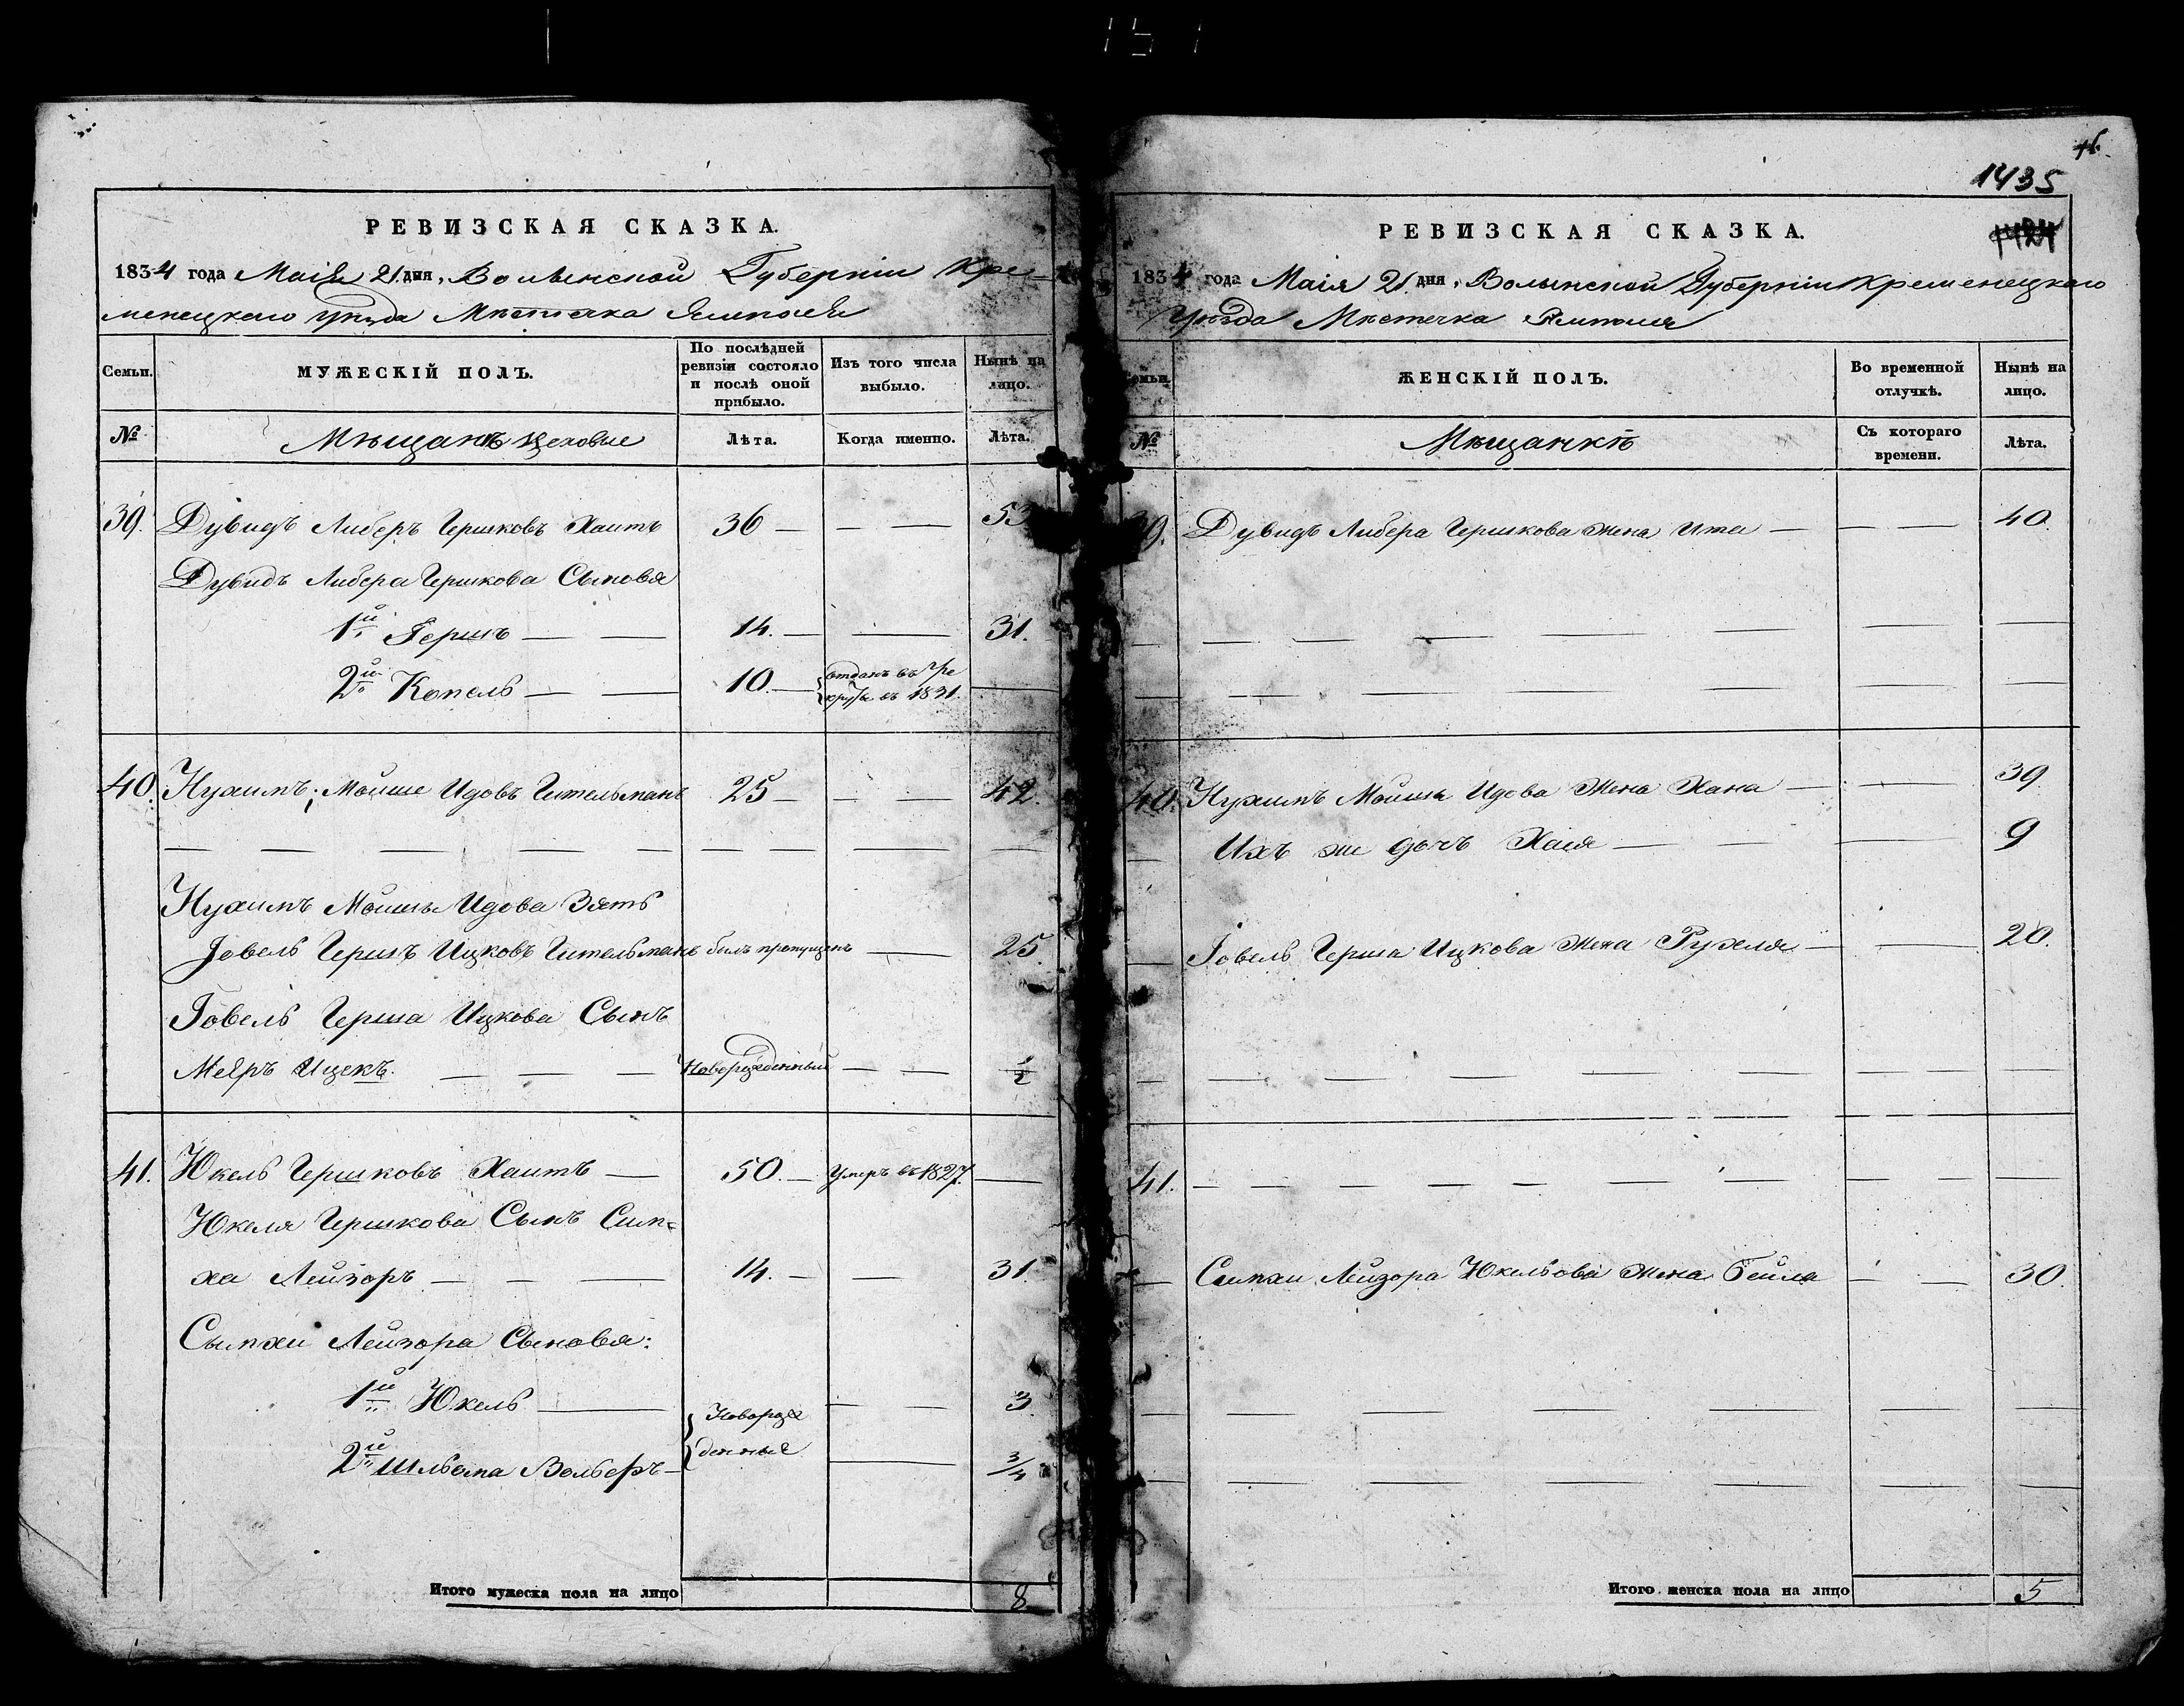 РЕВИЗСКАЯ СКАЗКА.
1834 года Маія 21. дня, Волынской Губерніи Кре-
менецкаго уѣзда Мѣстечка Ямполя
Семьи.
МУЖЕСКІЙ ПОЛЪ.
По послѣдней
ревизіи состояло
и послѣ оной
прибыло.
Изъ того числа
выбыло.
Нынѣ на
лицо.
№
Мѣщанѣ цеховые
Лѣта.
Когда именно.
Лѣта.
39. Дувидъ Либеръ Гершковъ Хаитъ 36 — — — 53
Дувидъ Либера Гершкова Сыновья
1й Гершъ — — 14. — — 31.
2й Копель — — 10. — отданъ въ ре
круты въ 1831. —
40. Нухимъ Мойше Идовъ Гительманъ 25 — — — 42.
Нухимъ Мойше Идова Зять
Іовель Гершъ Ицковъ Гительманъ былъ пропущенъ — 25.
Іовель Герша Ицкова Сынъ
Меѣръ Ицекъ. — — — Новорожденный — — 1/2
41. Юкель Гершковъ Хаитъ — 50. — Умеръ въ 1827. —
Юкеля Гершкова Сынъ Сим=
ха Лейзоръ — — — 14. — — 31.
Сымхи Лейзора Сыновья:
1й Юкель — — 3
Новорож
денные
2й Шльома Вольберъ — — 3/4
Итого мужеска пола на лицо 8.
1435
1424
РЕВИЗСКАЯ СКАЗКА.
1834 года Маія 21. дня, Волынской Губерніи Кременецкаго
Уѣзда Мѣстечка Ямполя
Семьи.
ЖЕНСКІЙ ПОЛЪ.
Во временной
отлучкѣ.
Нынѣ на
лицо.
№
Мѣщанкѣ
Съ котораго
времени.
Лѣта.
39. Дувидъ Либера Гершкова жена Ита — — — 40.
40. Нухимъ Мойша Идова Жена Хана — — 39
— Ихъ же дочь Хая — — — 9
— Іовель Герша Ицкова жена Рухля — — 20.
41. — — — — — — — —
— Симхи Лейзора Юкельова жена Бейла — — 30.
Итого женска пола на лицо 5